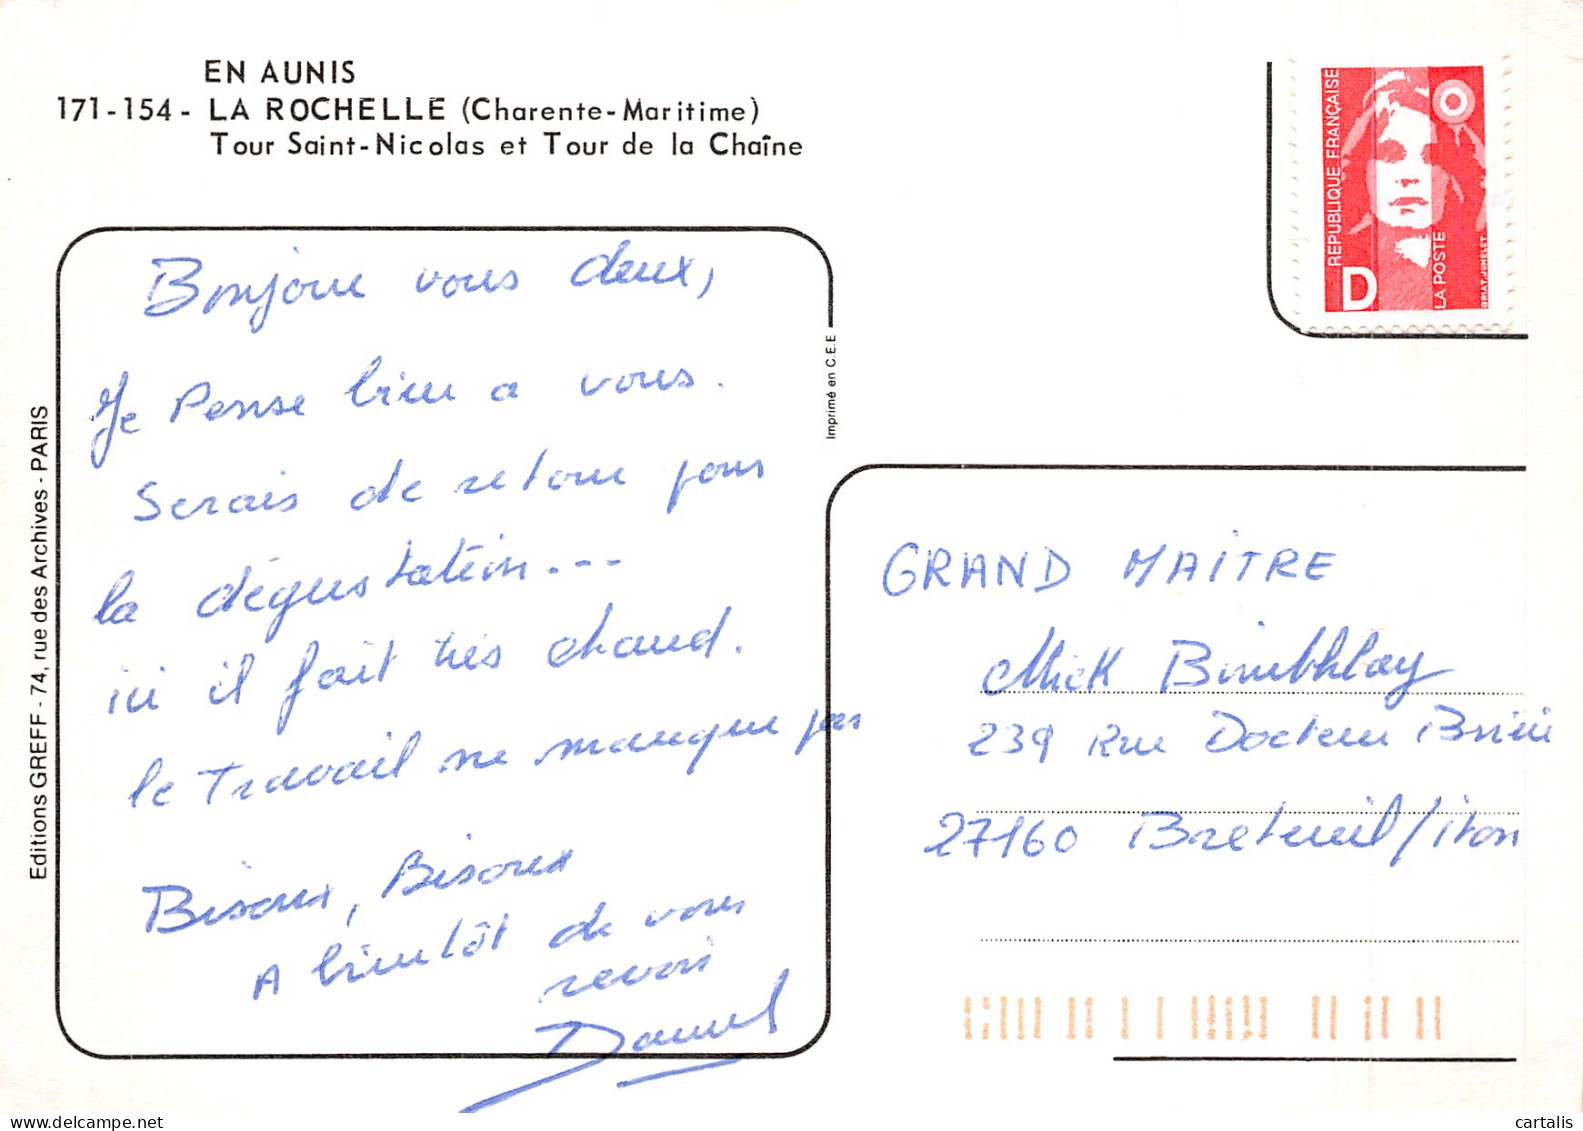 EN AUNIS
171-154 - LA ROCHELLE (Charente-Maritime)
Tour Saint-Nicolas et Tour de la Chaîne
REPUBLIQUE FRANÇAISE
D
LA POSTE
BRIAT.JUMELET
Bonjour vous deux,
Je Pense bien a vous.
Serais de retour pour
la dégustation...
ici il fait très chaud.
le Travail ne manque pas
Bisoux, Bisoux
A bientôt de vous
revoir
Daniel
Imprimé en C.E.E
Editions GREFF - 74, rue des Archives - PARIS
GRAND MAITRE
Mick
239 Rue Docteur
27160 Breteuil/iton
delcampe.net
cartalis